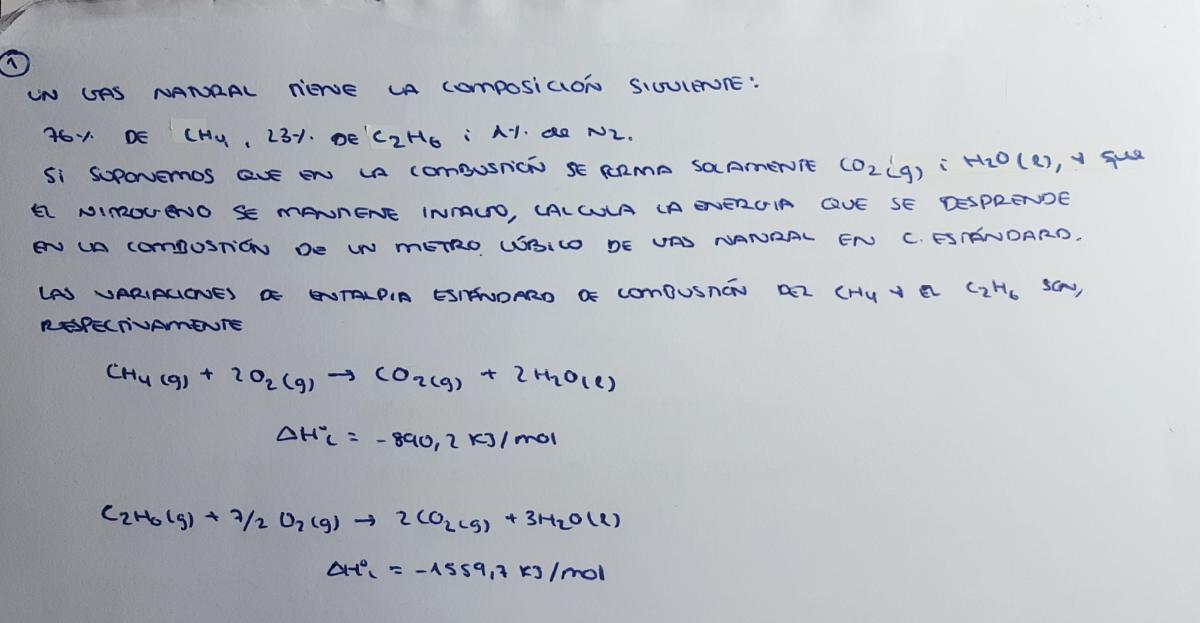 1
UN GAS NATURAL TIENE LA COMPOSICIÓN SIGUIENTE:
76% DE CH4, 23% DE C2H6 i 1% de N2.
SI SUPONEMOS QUE EN LA COMBUSTIÓN SE FORMA SOLAMENTE CO2(g) i H2O(l), y que
EL NITROGENO SE MANTIENE INTACTO, CALCULA LA ENERGIA QUE SE DESPRENDE
EN LA COMBUSTIÓN DE UN METRO CÚBICO DE GAS NATURAL EN C. ESTÁNDARD.
LAS VARIACIONES DE ENTALPIA ESTÁNDARD DE COMBUSTIÓN DEL CH4 Y EL C2H6 SON,
RESPECTIVAMENTE
CH4(g) + 2O2(g) → CO2(g) + 2H2O(l)
ΔH°c = -890,2 KJ/mol
C2H6(g) + 7/2 O2(g) → 2CO2(g) + 3H2O(l)
ΔH°c = -1559,7 KJ/mol